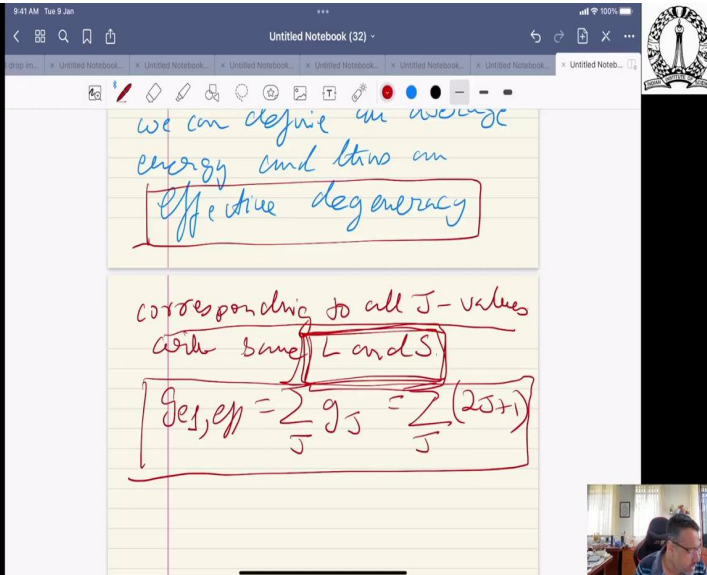 9:41 AM Tue 9 Jan
100%
Untitled Notebook (32)
drop im... × Untitled Notebook... × Untitled Notebook... × Untitled Notebook... × Untitled Notebook... × Untitled Notebook... × Untitled Notebook... × Untitled Noteb...
we can define an average
energy and thus an
effective degeneracy
corresponding to all J-values
with same L and S.
g_el,eff = Σ_J g_J = Σ_J (2J+1)